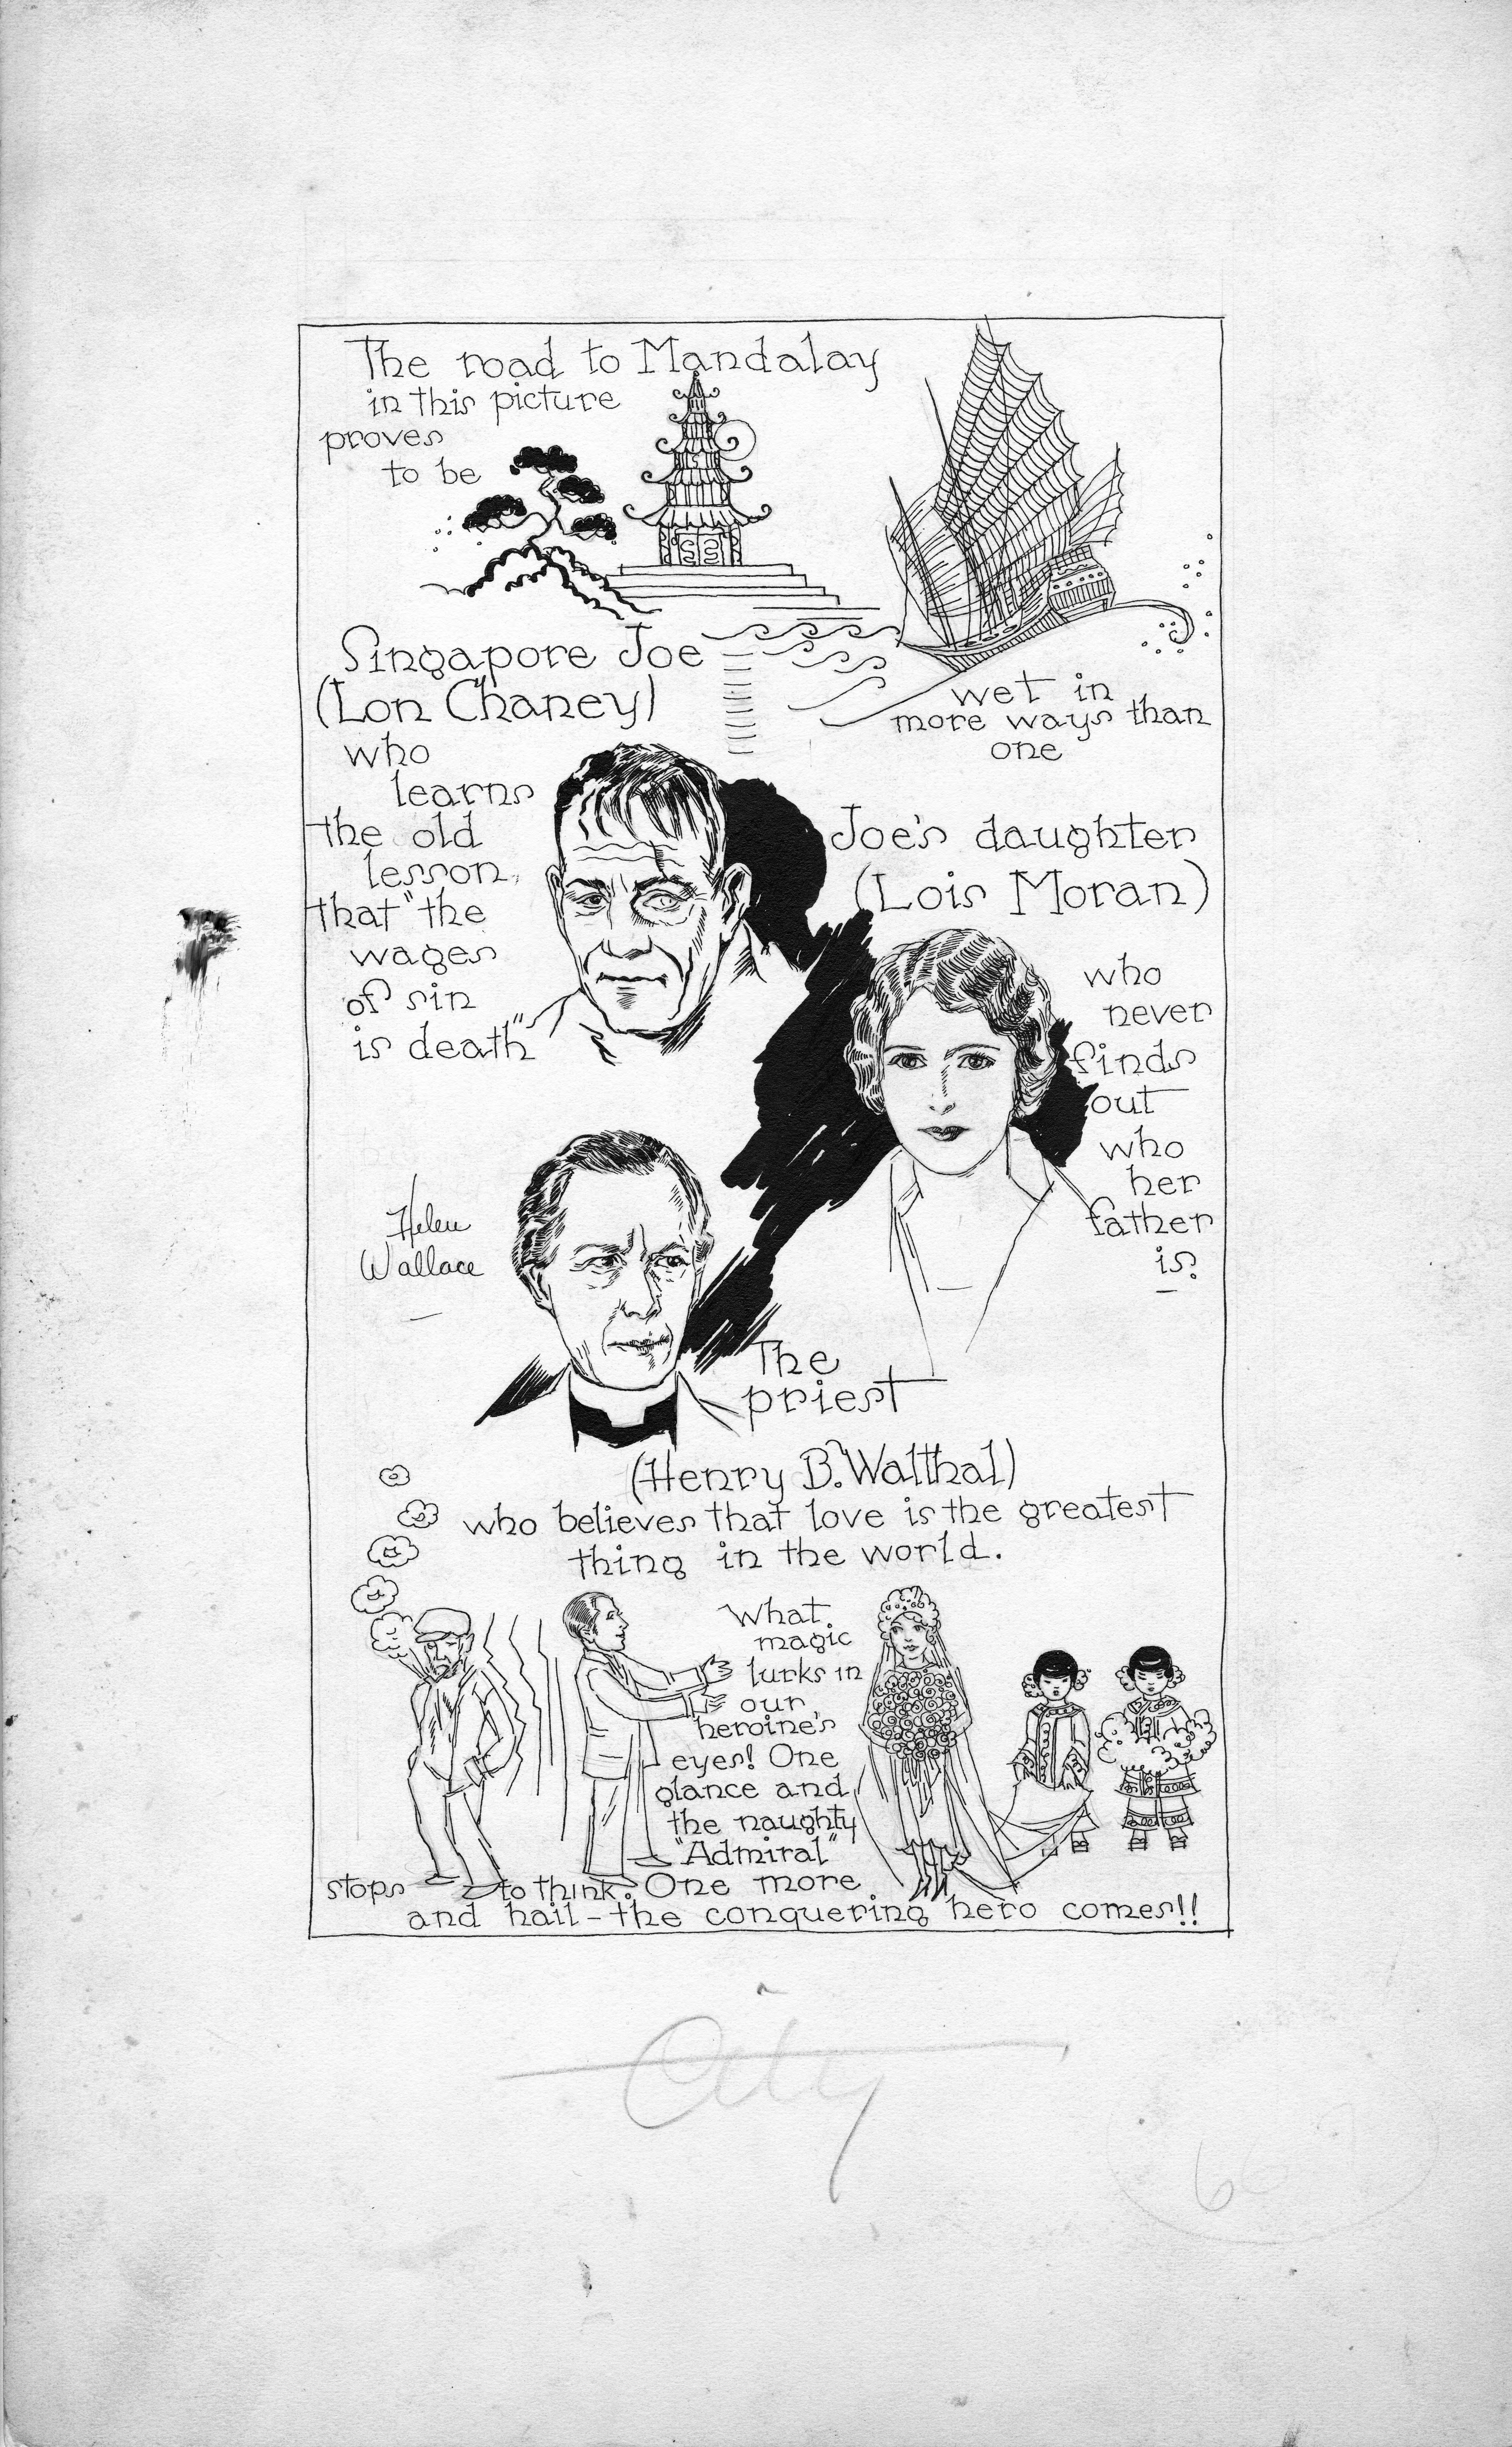 The road to Mandalay
in this picture
proves
to be
wet in
more ways than
one
Singapore Joe
(Lon Chaney)
who
learns
the old
lesson,
that "the
wages
of sin
is death"
Joe's daughter
(Lois Moran)
who
never
finds
out
who
her
father
is.
Helen
Wallace
The
priest
(Henry B. Walthal)
who believes that love is the greatest
thing in the world.
What
magic
lurks in
our
heroine's
eyes! One
glance and
the naughty
"Admiral"
stops to think. One more
and hail - the conquering hero comes!!
City